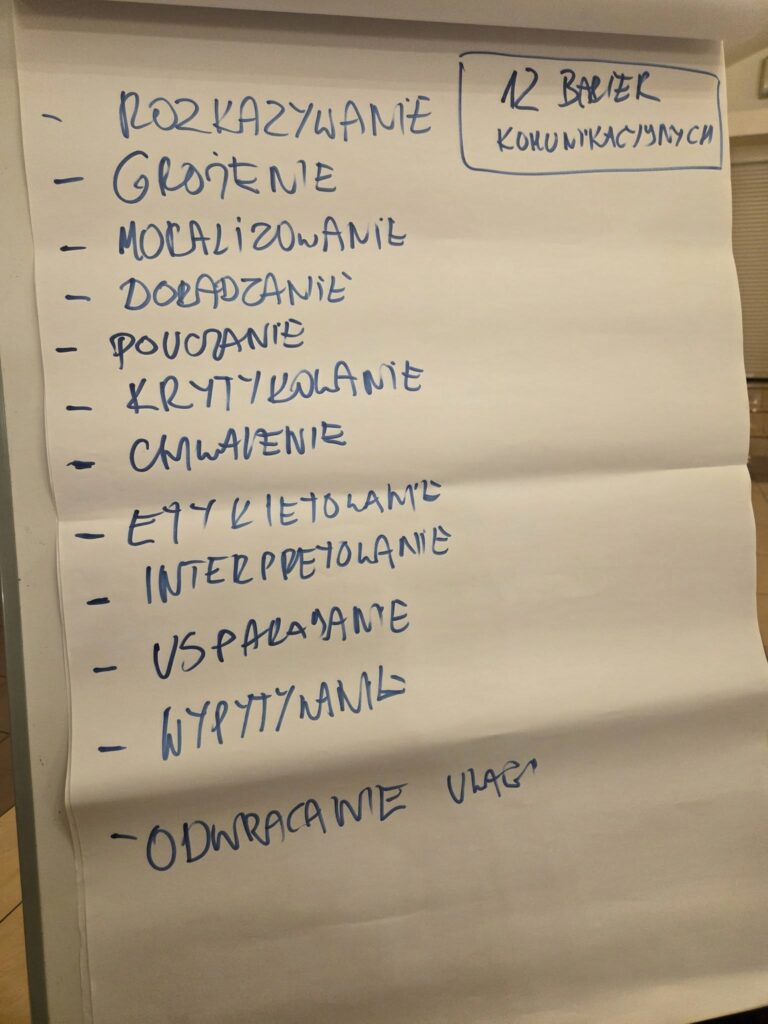 12 BARIER
KOMUNIKACYJNYCH
- ROZKAZYWANIE
- GROŻENIE
- MORALIZOWANIE
- DORADZANIE
- POUCZANIE
- KRYTYKOWANIE
- CHWALENIE
- ETYKIETOWANIE
- INTERPRETOWANIE
- USPAKAJANIE
- WYPYTYWANIE
- ODWRACANIE UWAGI